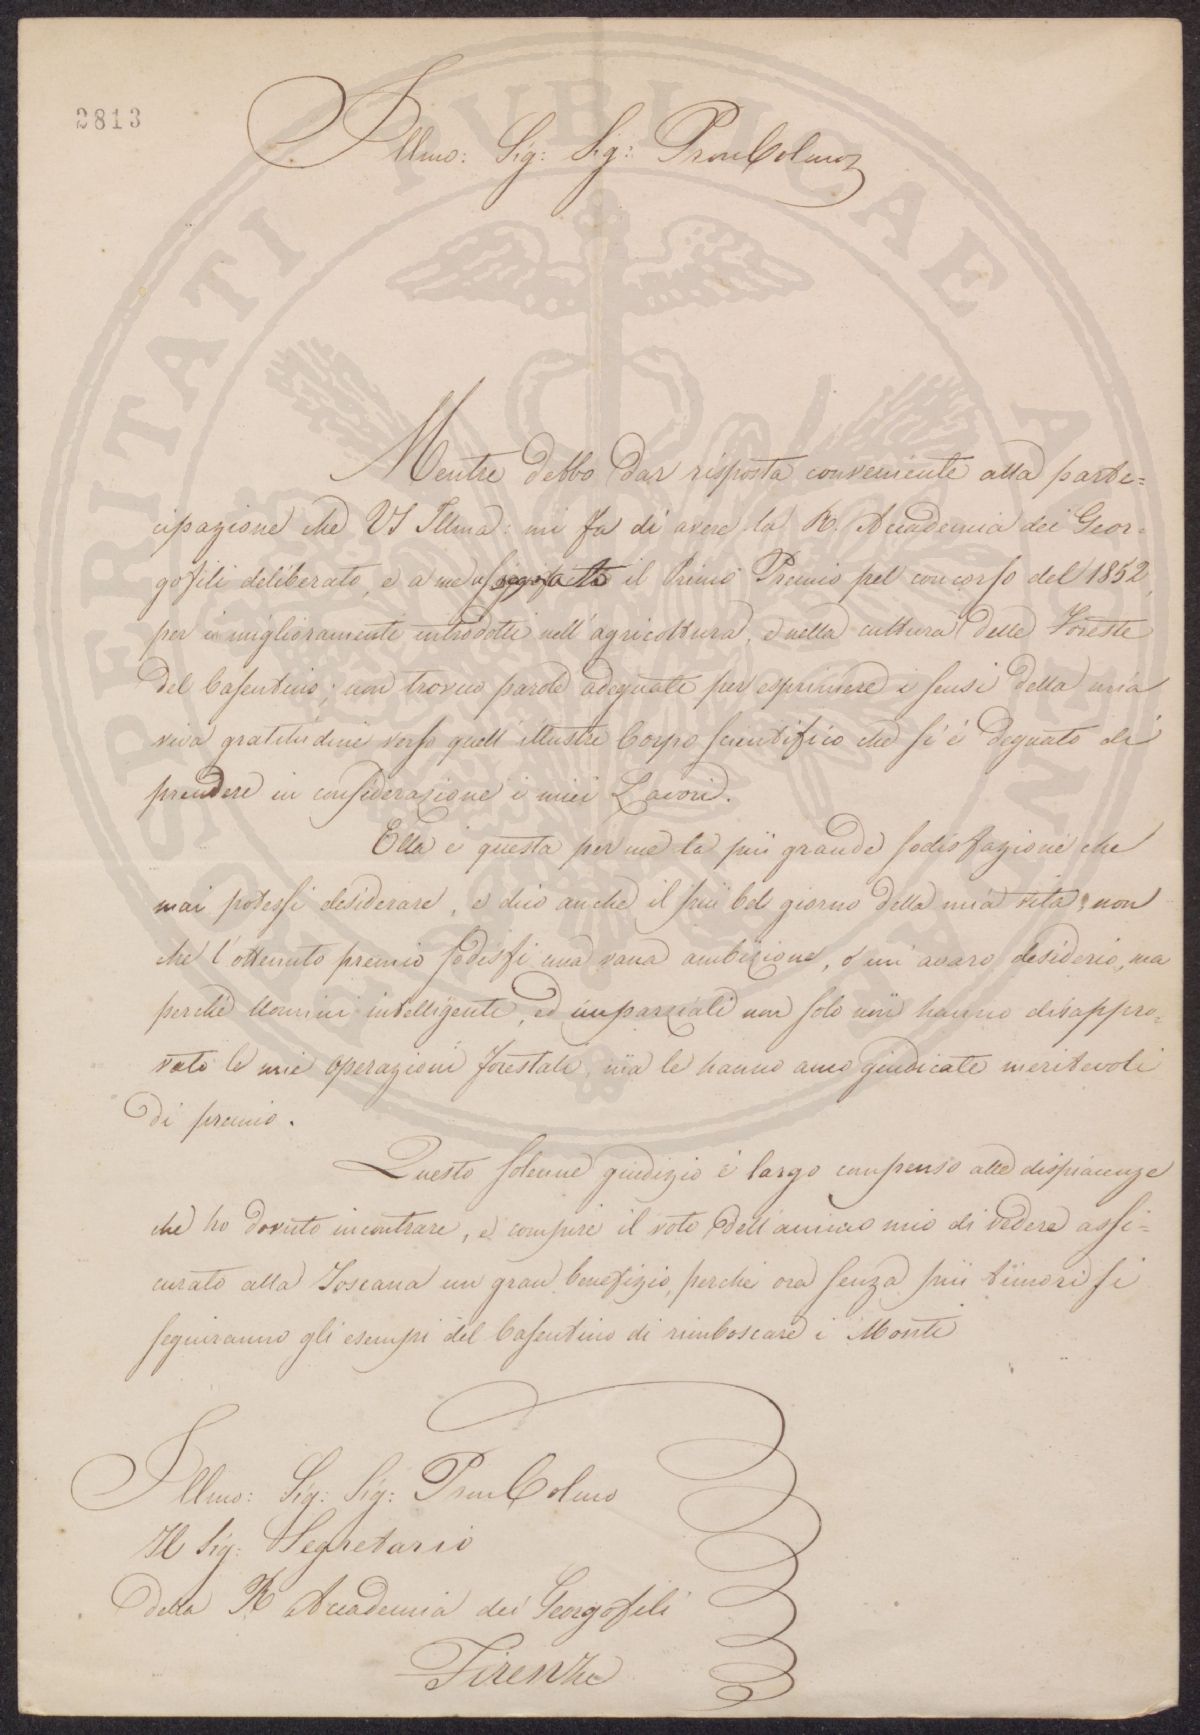 2813
Illmo: Sig: Sig: Pron Colmo
Mentre debbo dar risposta conveniente alla parte=
cipazione che VS Illma: mi fa di avere la R. Accademia dei Geor=
gofili deliberato, e a me il Primo Premio pel concorso del 1852,
per i miglioramenti introdotti nell'agricoltura, e nella cultura delle Foreste
del Casentino; non trovo parole adeguate per esprimere i sensi della mia
viva gratitudine verso quell'illustre Corpo scientifico che si è degnato di
prendere in considerazione i miei Lavori.
Ella è questa per me la più grande sodisfazione che
mai potessi desiderare, e dico anche il più bel giorno della mia vita; non
che l'ottenuto premio sodisfi una vana ambizione, o un'avaro desiderio, ma
perchè Uomini intelligenti, ed imparziali non solo non hanno disappro=
vato le mie operazioni forestali, ma le hanno anco giudicate meritevoli
di premio.
Questo solenne giudizio è largo compenso alle dispiacenze
che ho dovuto incontrare, e compie il voto dell'animo mio di vedere assi=
curato alla Toscana un gran benefizio, perchè ora senza più timori si
seguiranno gli esempi del Casentino di rimboscare i Monti
Illmo: Sig: Sig: Pron Colmo
Il Sig: Segretario
della R Accademia dei Georgofili
Firenze
PROSPERITATI PUBLICAE AUGENDAE